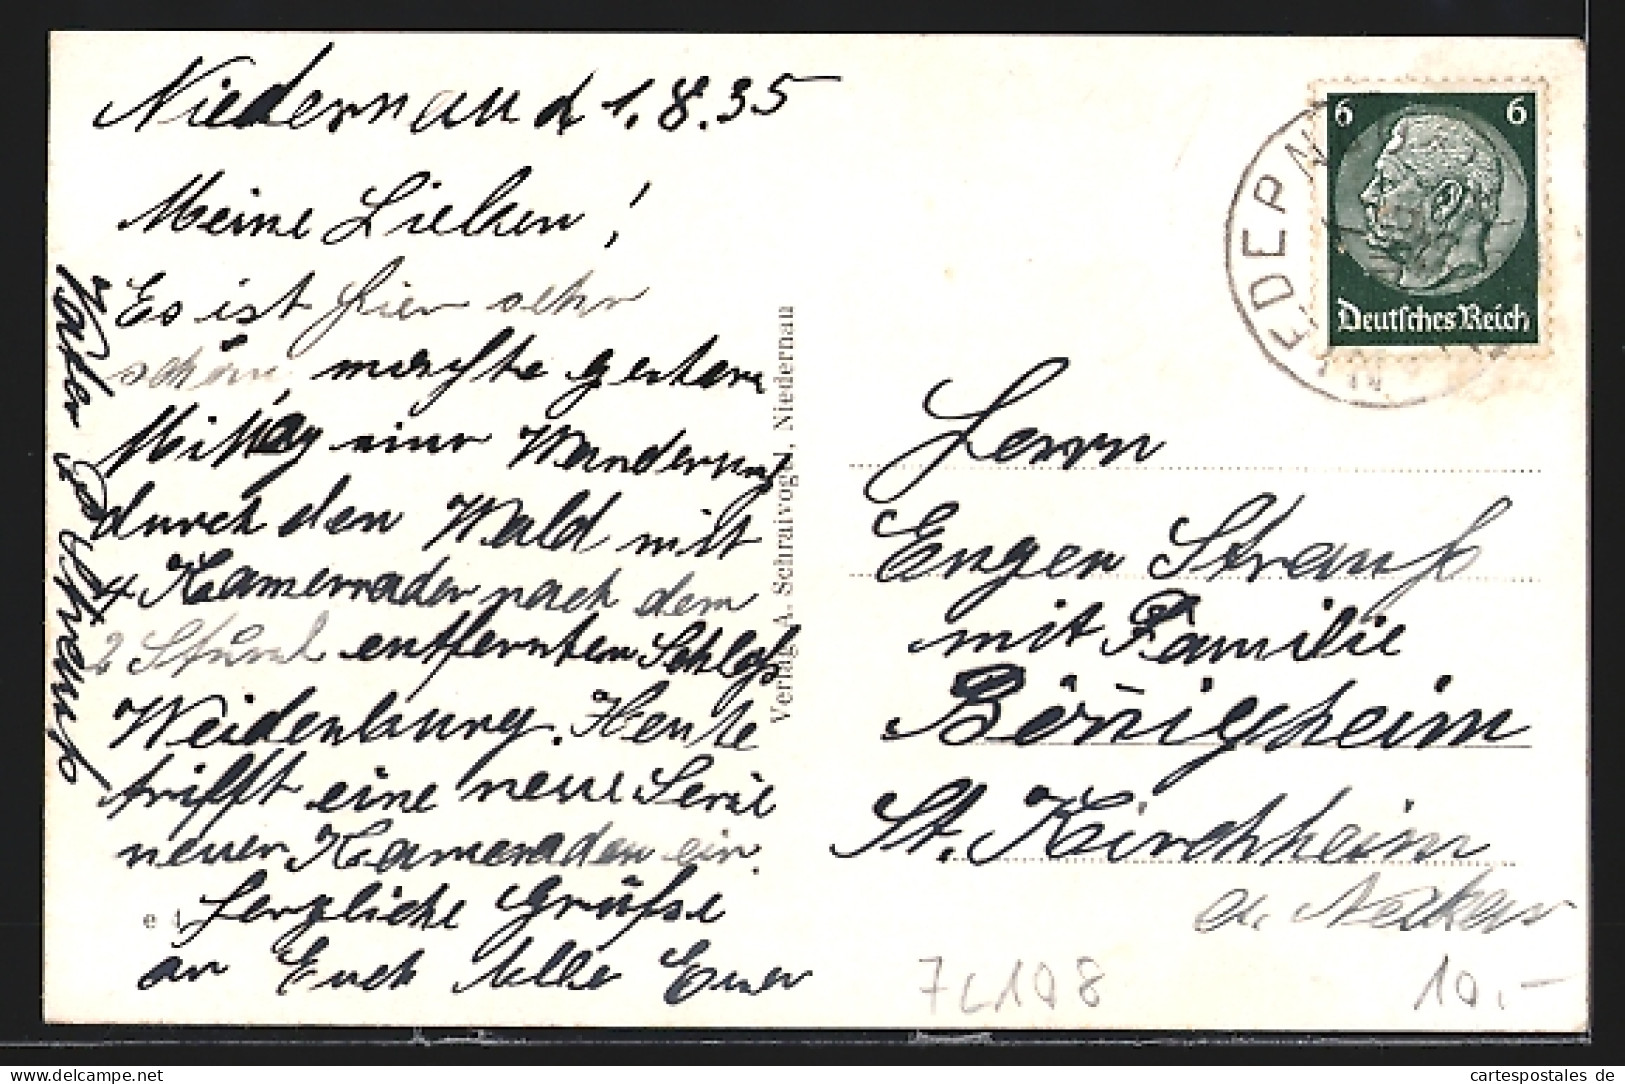 Niedernau d 1.8.35
Meine Lieben!
Es ist hier sehr
schön, machte gestern
Mittag einer Wanderung
durch den Wald mit
4 Kamerraden nach dem
2 Stund entfernten Schloß
Weidenburg. Heute
trifft eine neue Serie
neuer Kameraden ein.
Herzliche Grüße
an Euch Alle Euer
Vater
e 4
Verlag A. Schraivogel, Niedernau
6 6
Deutsches Reich
Herrn
Eugen Strauß
mit Familie
Bönigheim
St. Kirchheim
a. Neckar
10.-
cartespostales de